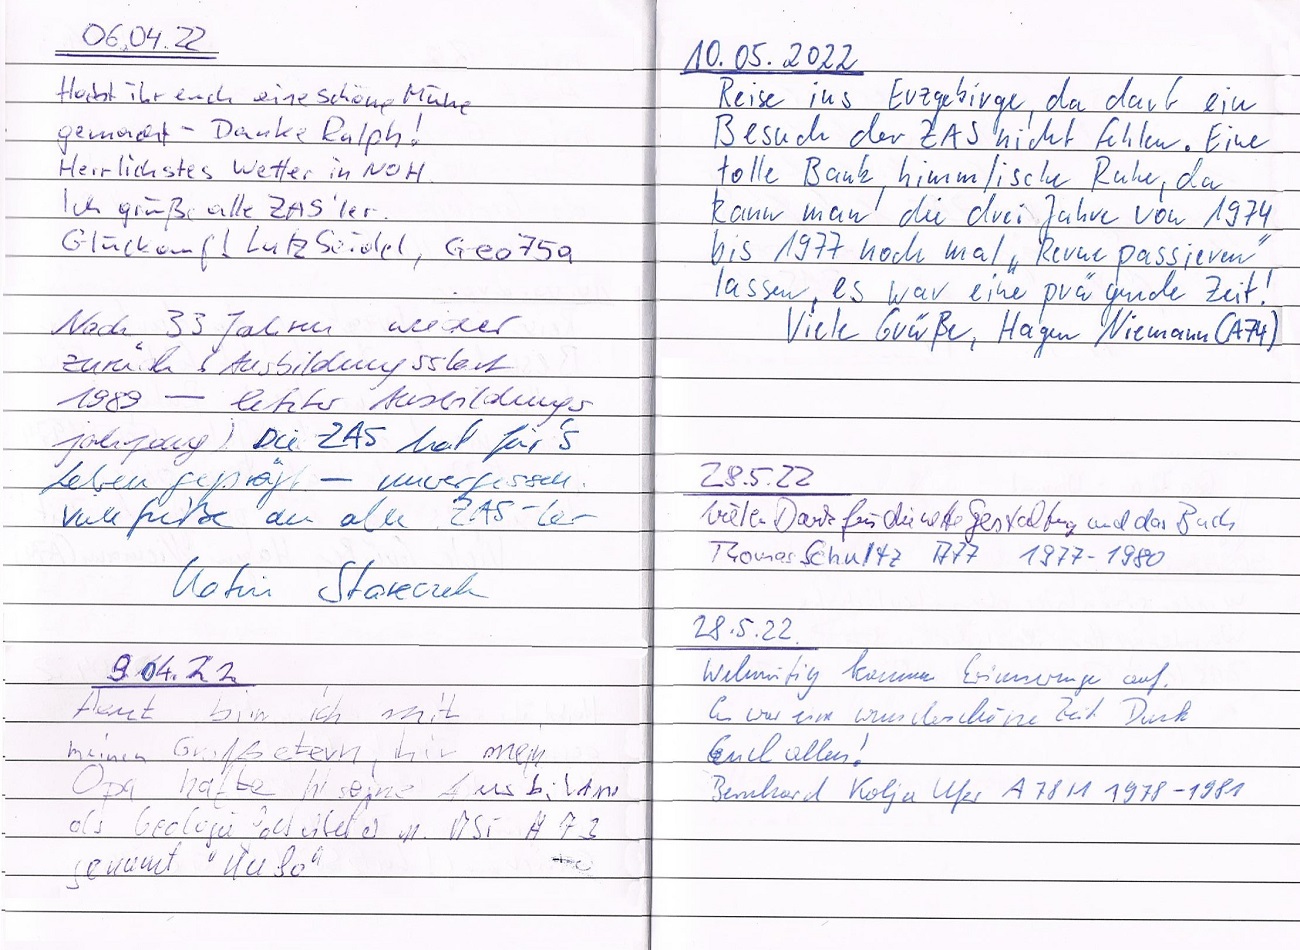 06.04.22
Habt ihr euch eine schöne Mühe
gemacht – Danke Ralph!
Herrlichstes Wetter in NOH.
Ich grüße alle ZAS'ler.
Glückauf! Lutz Seidel, Geo75a
Nach 33 Jahren wieder
zurück (Ausbildungsstart
1989 — letzter Ausbildungs
jahrgang) Die ZAS hat für's
Leben geprägt — unvergessen.
Viele Grüße an alle ZAS-ler
9.04.22
bin ich mit
meinen Großeltern, hir mein
Opa hatte hi seine Ausbildung
als
genannt "
10.05.2022
Reise ins Erzgebirge, da darf ein
Besuch der ZAS nicht fehlen. Eine
tolle Bank, himmlische Ruhe, da
kann man die drei Jahre von 1974
bis 1977 noch mal „Revue passieren"
lassen, es war eine prägende Zeit!
Viele Grüße, Hagen Niemann (A74)
28.5.22
Vielen Dank für die nette Gestaltung und das Buch
Thomas Schultz A77 1977-1980
28.5.22.
Wehmütig kommen Erinnerunge auf.
Es war eine wunderschöne Zeit Dank
Euch allen!
Bernhard Kolja A78 1978-1981